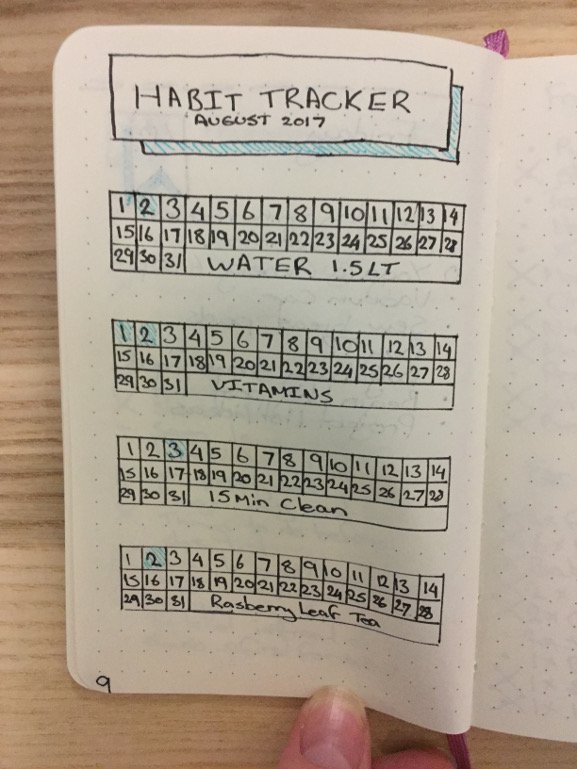 HABIT TRACKER
AUGUST 2017
1 2 3 4 5 6 7 8 9 10 11 12 13 14
15 16 17 18 19 20 21 22 23 24 25 26 27 28
29 30 31 WATER 1.5LT
1 2 3 4 5 6 7 8 9 10 11 12 13 14
15 16 17 18 19 20 21 22 23 24 25 26 27 28
29 30 31 VITAMINS
1 2 3 4 5 6 7 8 9 10 11 12 13 14
15 16 17 18 19 20 21 22 23 24 25 26 27 28
29 30 31 15 Min Clean
1 2 3 4 5 6 7 8 9 10 11 12 13 14
15 16 17 18 19 20 21 22 23 24 25 26 27 28
29 30 31 Rasberry Leaf Tea
9